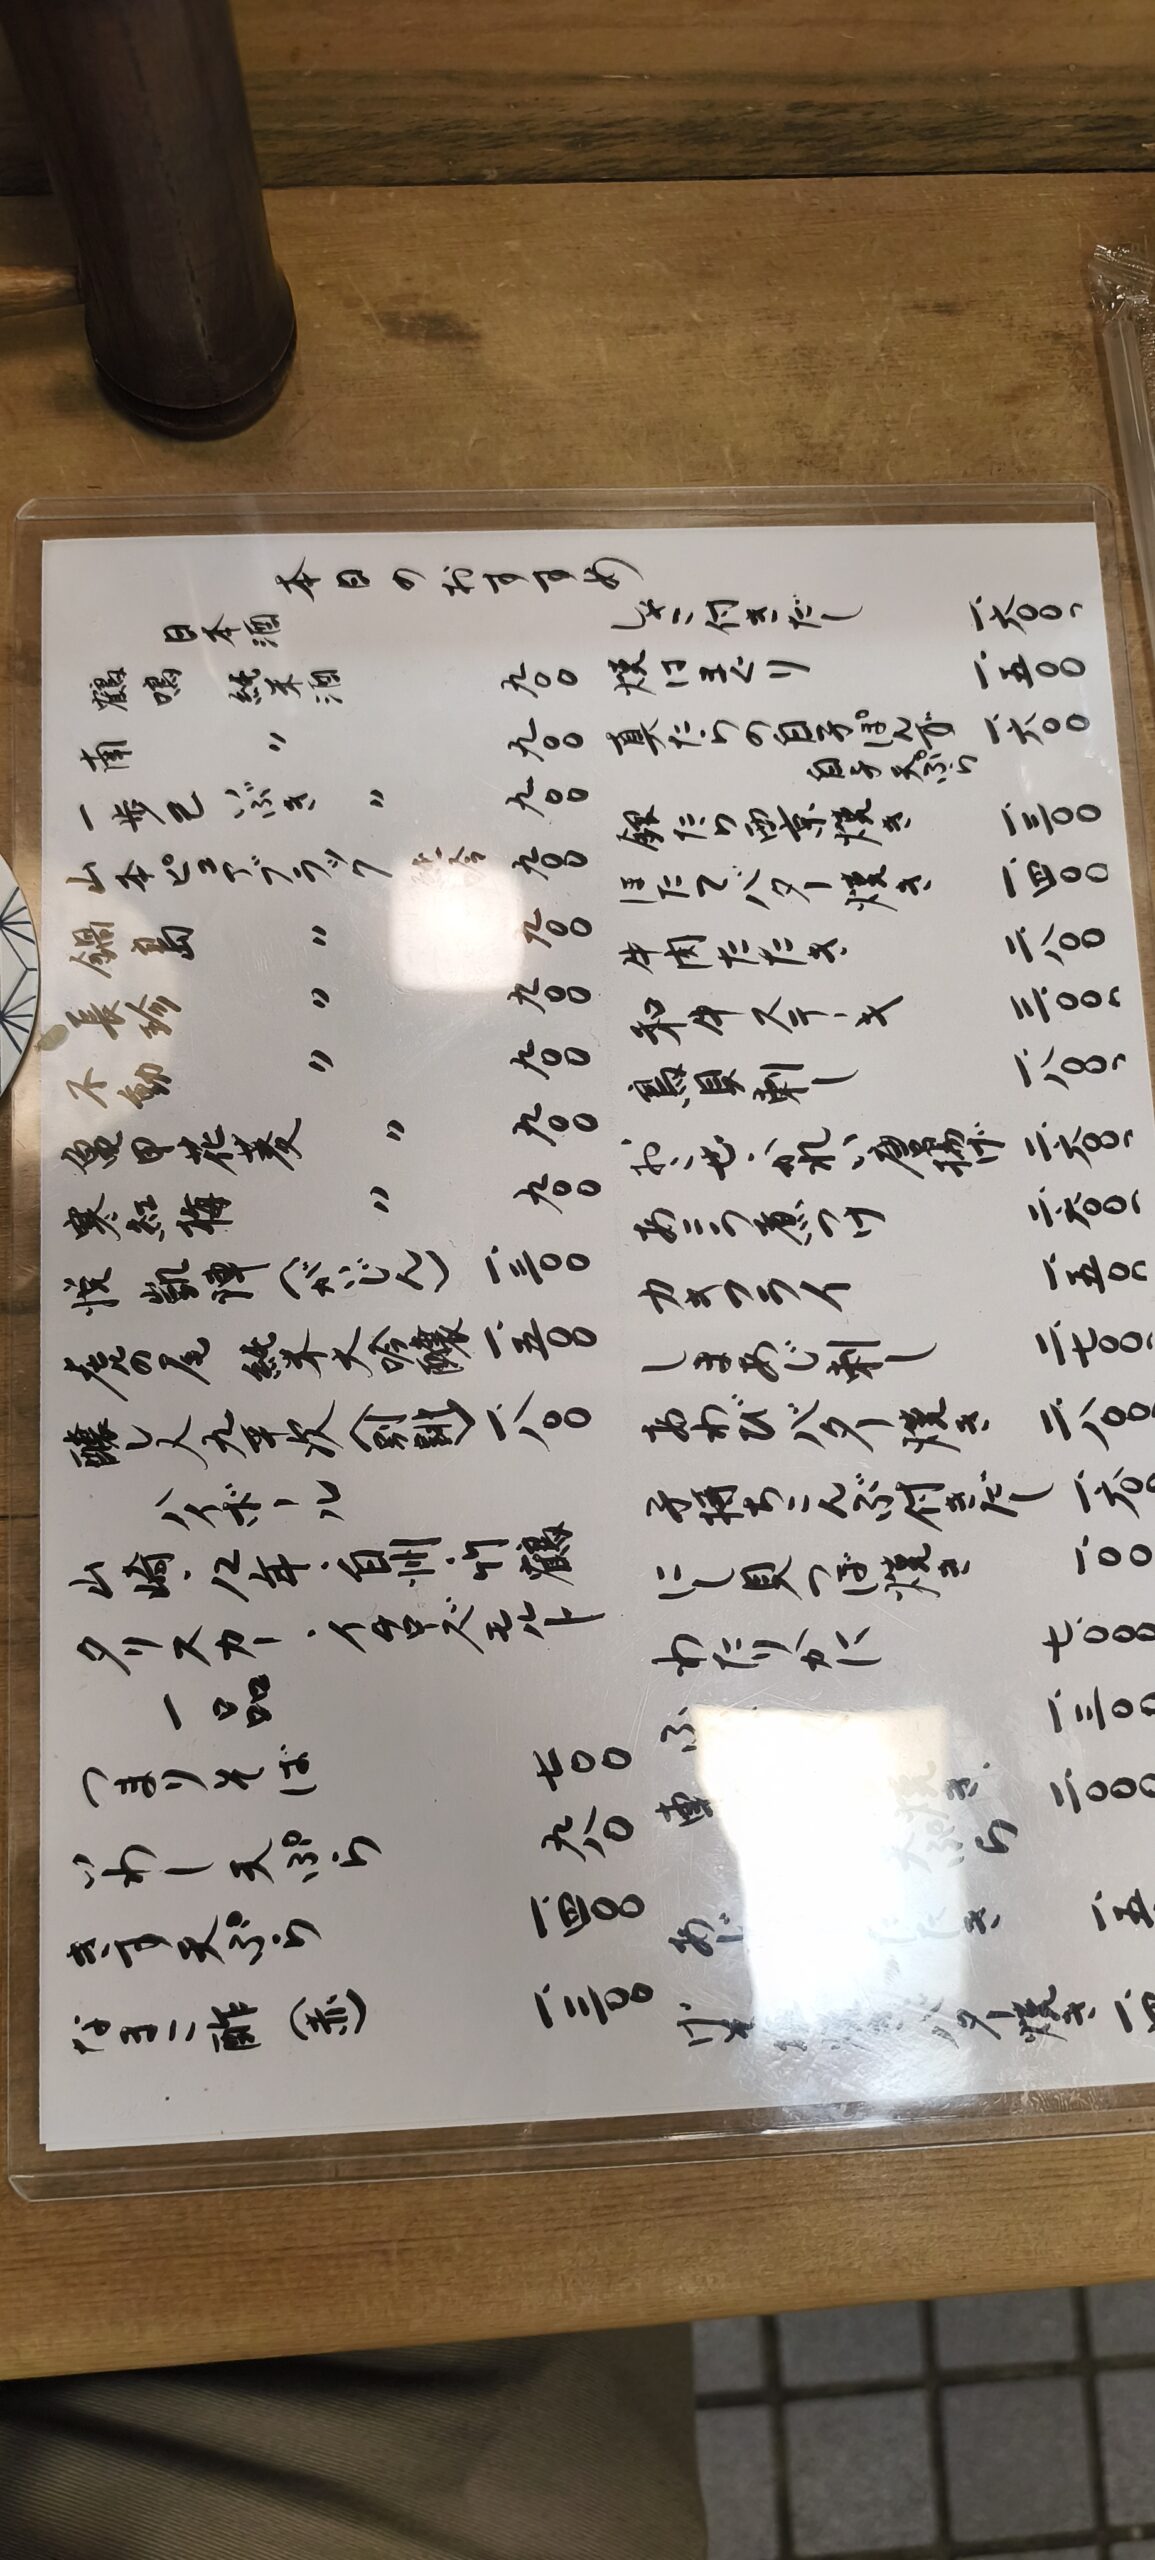 本日のおすすめ
日本酒
鶴鳴 純米酒 九〇〇
南 〃 九〇〇
一歩己 いぶき 〃 九〇〇
山本ピュアブラック 純吟 九〇〇
鍋島 〃 九〇〇
長珍 〃 九〇〇
不動 〃 九〇〇
亀甲花菱 〃 九〇〇
寒紅梅 〃 九〇〇
悦凱陣(がいじん) 一、三〇〇
虎の尾 純米大吟醸 一、五〇〇
醸し人九平次(別誂) 一、八〇〇
ハイボール
山崎・12年・白州・竹鶴
タリスカー・イチローズモルト
一品
つまりそば 七〇〇
いわし天ぷら 九八〇
きす天ぷら 一、四〇〇
なまこ酢(赤) 一、三〇〇
しゃこ付きだし 一、六〇〇
焼はまぐり 一、五〇〇
真だらの白子ぽんず 一、六〇〇
白子天ぷら
銀だら西京焼き 一、三〇〇
ほたてバター焼き 一、四〇〇
牛肉たたき 二、八〇〇
和牛ステーキ 三、〇〇〇
鳥貝刺し 一、八〇〇
おこぜ、かれい唐揚げ 二、六〇〇
あこう煮つけ 二、六〇〇
カキフライ 一、五〇〇
しまあじ刺し 二、七〇〇
あわびバター焼き 二、八〇〇
子持ちこんぶ付きだし 一、六〇〇
にし貝つぼ焼き
わたりがに 七、〇〇〇
ふ 一、三〇〇
焼き、 二、〇〇〇
天ぷら
あじ
バター焼き